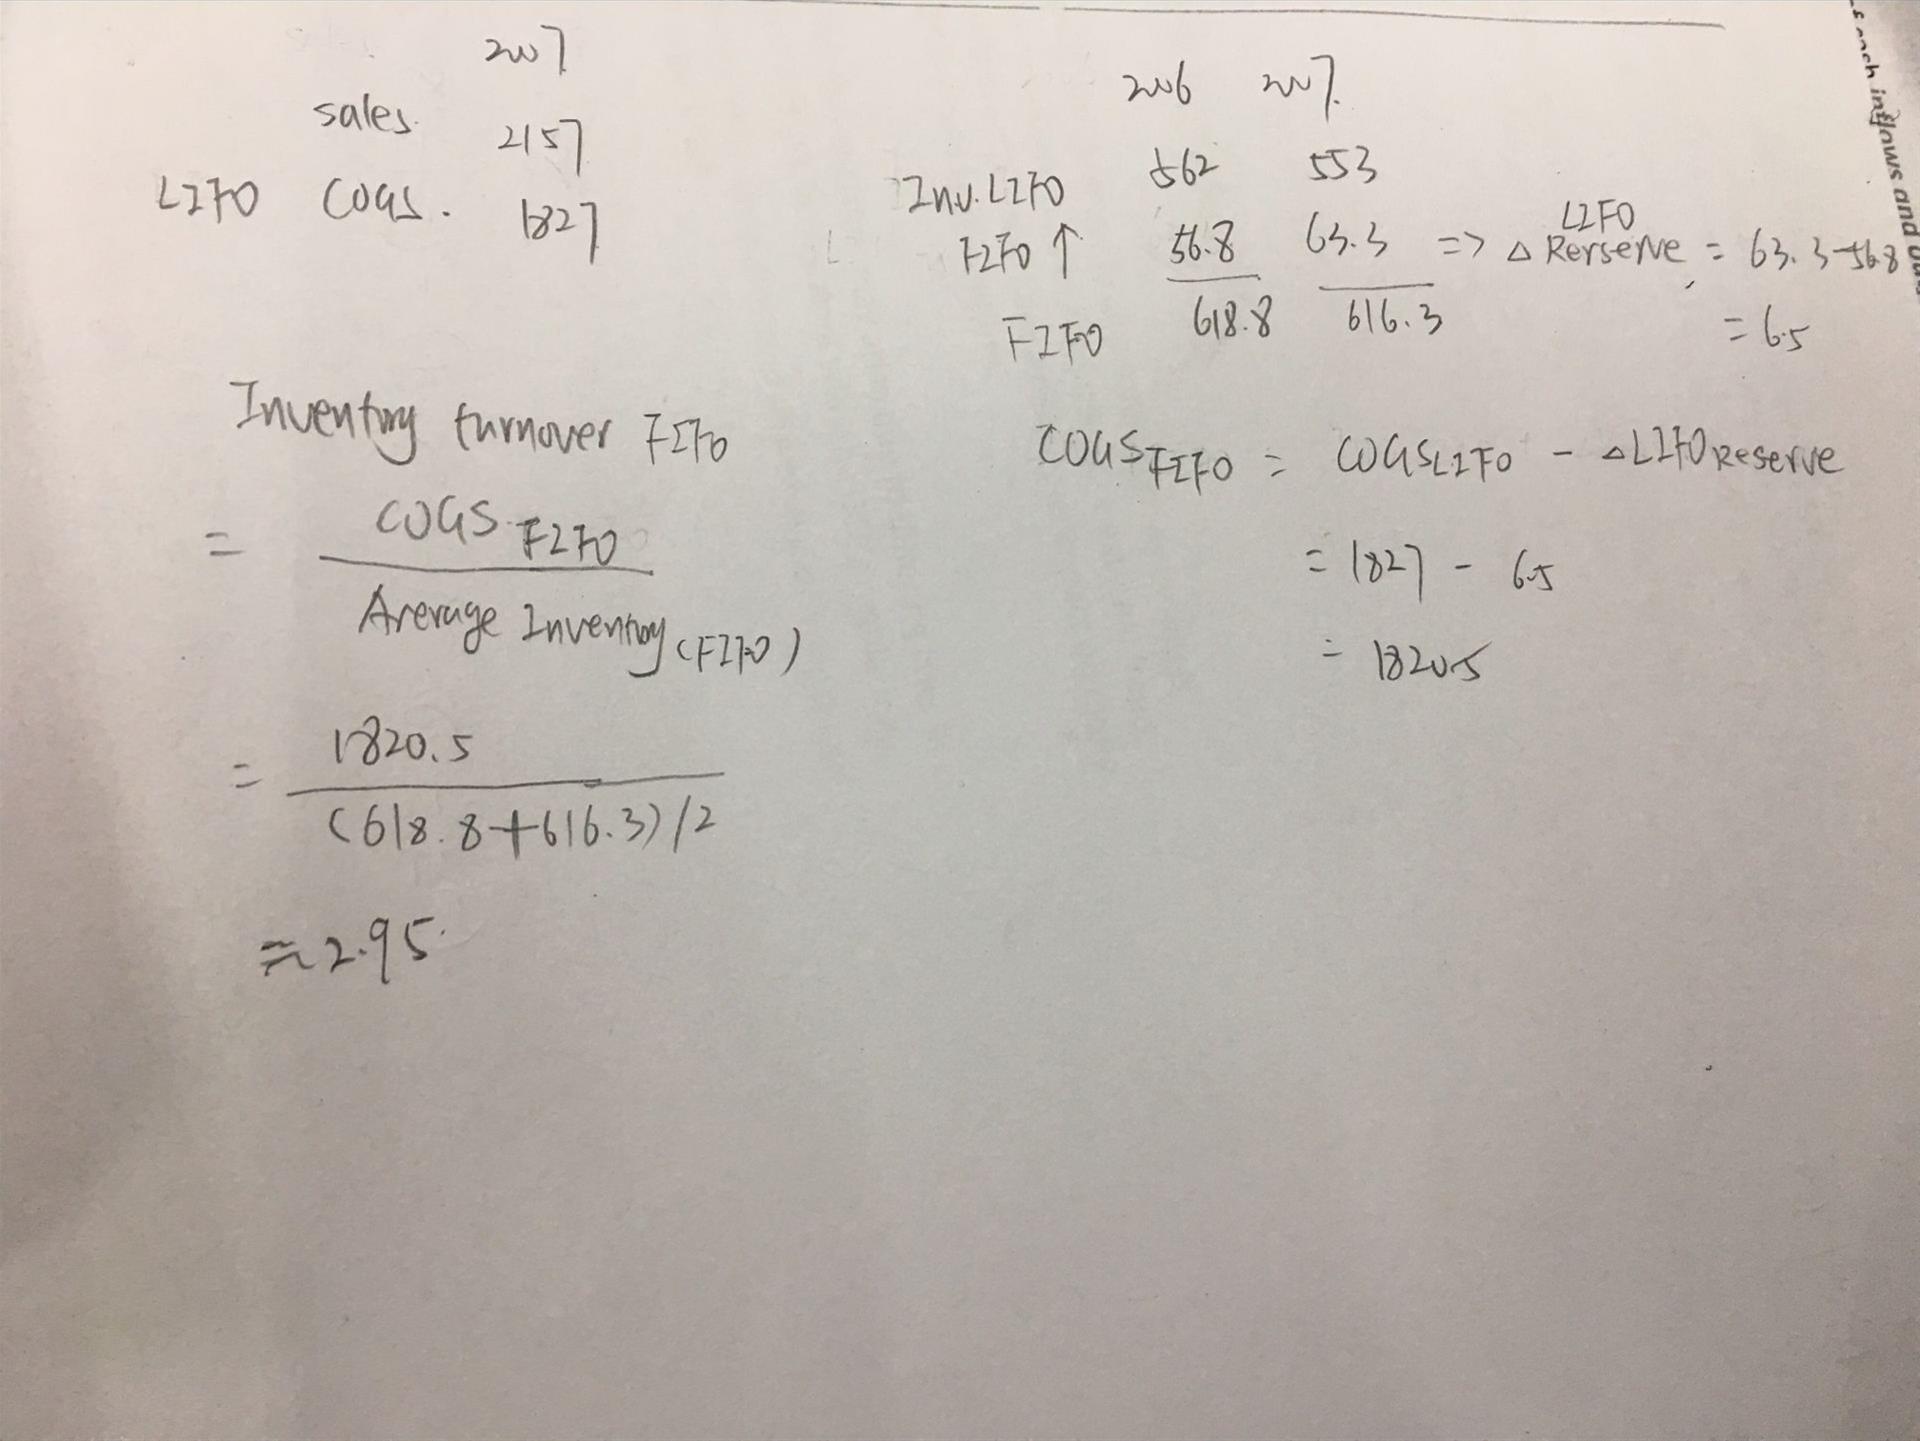 2007
sales. 2157
LIFO COGS. 1827
2006 2007.
Inv. LIFO 562 553
FIFO ↑ 56.8 63.3 => △ LIFO Rerserve = 63.3-56.8
= 6.5
FIFO 618.8 616.3
Inventory turnover FIFO
= COGS FIFO
Average Inventory (FIFO)
= 1820.5
(618.8+616.3)/2
≈ 2.95.
COGS FIFO = COGS LIFO - △LIFO Reserve
= 1827 - 6.5
= 1820.5
s each inflows and